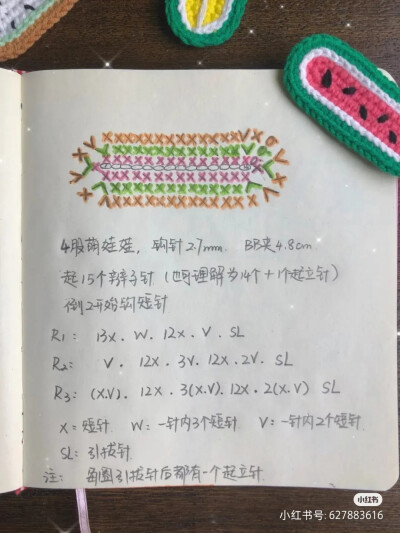 4股萌娃娃，钩针2.7mm. BB夹4.8cm
起15个辫子针（也可理解为14个+1个起立针）
倒2开始钩短针
R1: 13X. W. 12X. V. SL
R2: V. 12X. 3V. 12X. 2V. SL
R3: (X.V). 12X. 3(X.V). 12X. 2(X.V) SL
X=短针 W=一针内3个短针 V=一针内2个短针
SL: 引拔针
注: 每圈引拔针后都有一个起立针
小红书
小红书号: 627883616